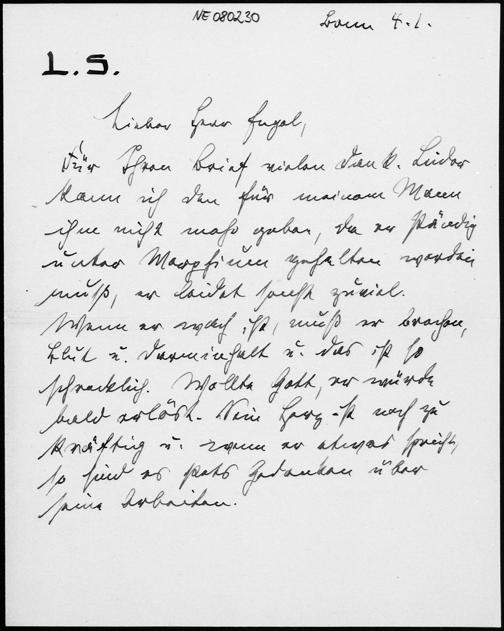 NE 080230
Bonn 4.1.
L.S.
Lieber Herr Engel,
Für Ihren Brief vielen Dank. Leider
kann ich den für meinen Mann
ihm nicht mehr geben, da er ständig
unter Morphium gehalten werden
muß, er leidet sonst zuviel.
Wenn er wach ist, muß er brechen,
Blut u. Darminhalt u. das ist so
schrecklich. Wollte Gott, er würde
bald erlöst. Sein Herz ist noch zu
kräftig u. wenn er etwas spricht,
so sind es stets Gedanken über
seine Arbeiten.